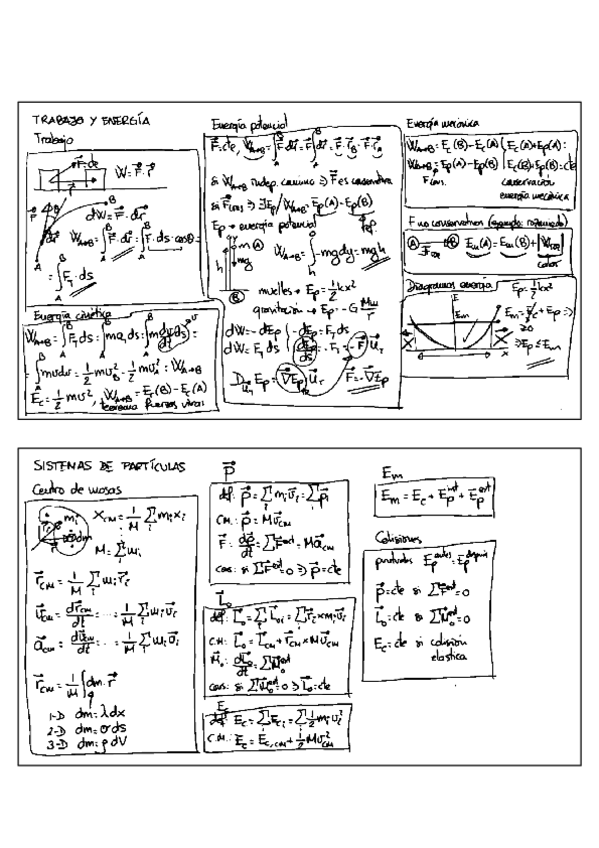 TRABAJO Y ENERGÍA
Trabajo
F⃗=cte
W=F⃗·r⃗
dW=F⃗·dr⃗
W_{A→B}=∫_A^B F⃗·dr⃗=∫_A^B F·ds·cosθ=
=∫_A^B F_T·ds
Energía cinética
W_{A→B}=∫_A^B F_T ds=∫_A^B m a_t ds=∫_A^B m (dv/dt) ds=
=∫_A^B mvdv=1/2 mv_B²-1/2 mv_A²=W_{A→B}
E_c=1/2 mv², W_{A→B}=E_c(B)-E_c(A)
teorema fuerzas vivas
Energía potencial
F⃗=cte, W_{A→B}=∫_A^B F⃗dr⃗=F⃗∫_A^B dr⃗=F⃗·r⃗_B-F⃗·r⃗_A
si W_{A→B} indep. camino ⇒ F⃗ es conservativa
si F⃗_{cons} ⇒ ∃E_p / W_{A→B}=E_p(A)-E_p(B)
E_p → energía potencial
m (A)
mg
h
(B)
W_{A→B}=∫_h^0 -mgdy=mgh
muelles → E_p=1/2 kx²
gravitación → E_p=-G Mm/r
dW=-dE_p
dW=F_T ds
-dE_p=F_T ds
dE_p/ds=-F_T=-F⃗·u⃗_T
D_{u_T} E_p=∇⃗E_p·u⃗_T
F⃗=-∇⃗E_p
Energía mecánica
W_{A→B}=E_c(B)-E_c(A)
W_{A→B}=E_p(A)-E_p(B)
E_c(A)+E_p(A)=
E_c(B)+E_p(B)=cte
F cons.
conservación
energía mecánica
F no conservativa (ejemplo: rozamiento)
(A) → (B)
E_m(A)=E_m(B)+|W_{roz}|
calor
Diagramas energía
E_p=1/2 kx²
E
E_m
x
E_m=E_c+E_p ⇒
≥0
⇒E_p≤E_m
SISTEMAS DE PARTÍCULAS
Centro de masas
m_i
dm
x_{CM}=1/M Σ_i m_i x_i
M=Σ_i m_i
r⃗_{CM}=1/M Σ_i m_i r⃗_i
v⃗_{CM}=dr⃗_{CM}/dt=...=1/M Σ_i m_i v⃗_i
a⃗_{CM}=dv⃗_{CM}/dt=...=1/M Σ_i m_i a⃗_i
r⃗_{CM}=1/M ∫dm·r⃗
1-D dm=λdx
2-D dm=σds
3-D dm=ρdV
p⃗
def: p⃗=Σ_i m_i v⃗_i=Σ_i p⃗_i
C.M.: p⃗=Mv⃗_{CM}
F⃗: dp⃗/dt=ΣF⃗^{ext}=Ma⃗_{CM}
cons: si ΣF⃗^{ext}=0 ⇒ p⃗=cte
L⃗_o
def: L⃗_o=Σ_i L⃗_{oi}=Σ_i r⃗_i×m_i v⃗_i
C.M.: L⃗_o=L⃗_{CM}+r⃗_{CM}×Mv⃗_{CM}
M⃗_o: dL⃗_o/dt=ΣM⃗_o^{ext}
cons: si ΣM⃗_o^{ext}=0 ⇒ L⃗_o=cte
E_c
def: E_c=Σ_i E_{ci}=Σ_i 1/2 m_i v_i²
C.M.: E_c=E_{c,CM}+1/2 Mv_{CM}²
E_m
E_m=E_c+E_p^{int}+E_p^{ext}
Colisiones
E_p^{antes}=E_p^{después}
p⃗=cte si ΣF⃗^{ext}=0
L⃗_o=cte si ΣM⃗_o^{ext}=0
E_c=cte si colisión
elástica